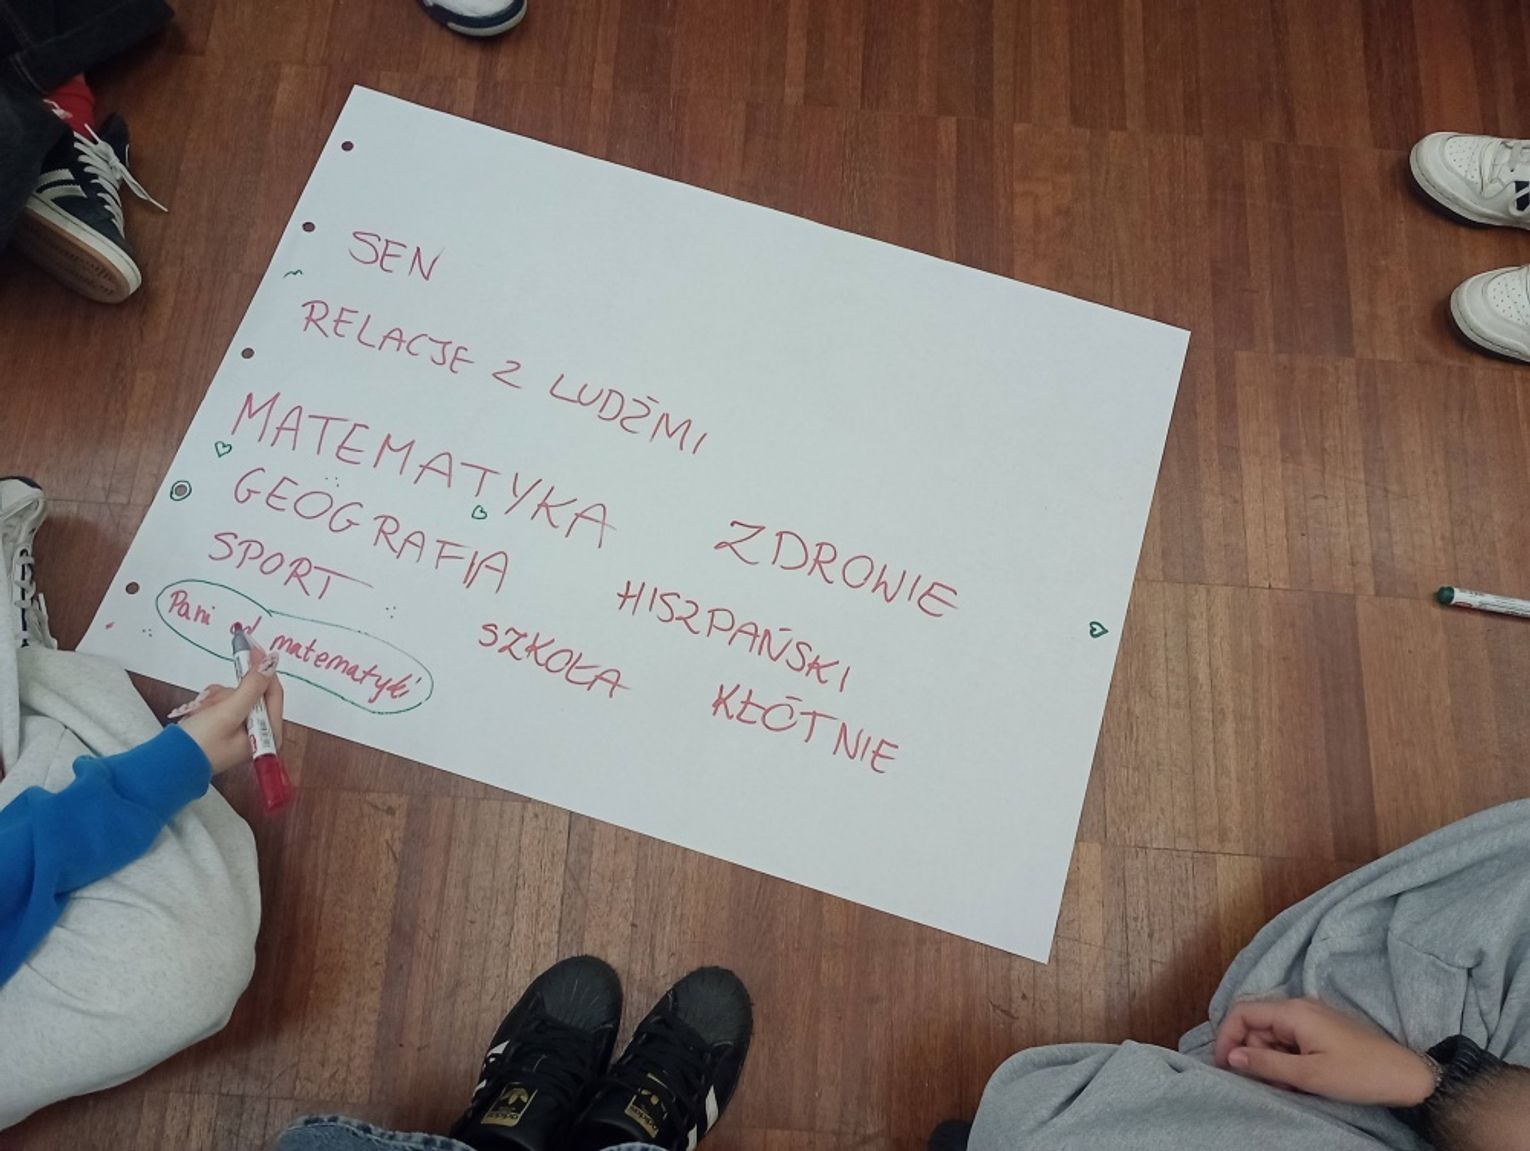 SEN
RELACJE Z LUDŹMI
MATEMATYKA
GEOGRAFIA
SPORT
Pani od matematyki
ZDROWIE
HISZPAŃSKI
SZKOŁA
KŁÓTNIE
adidas
adidas